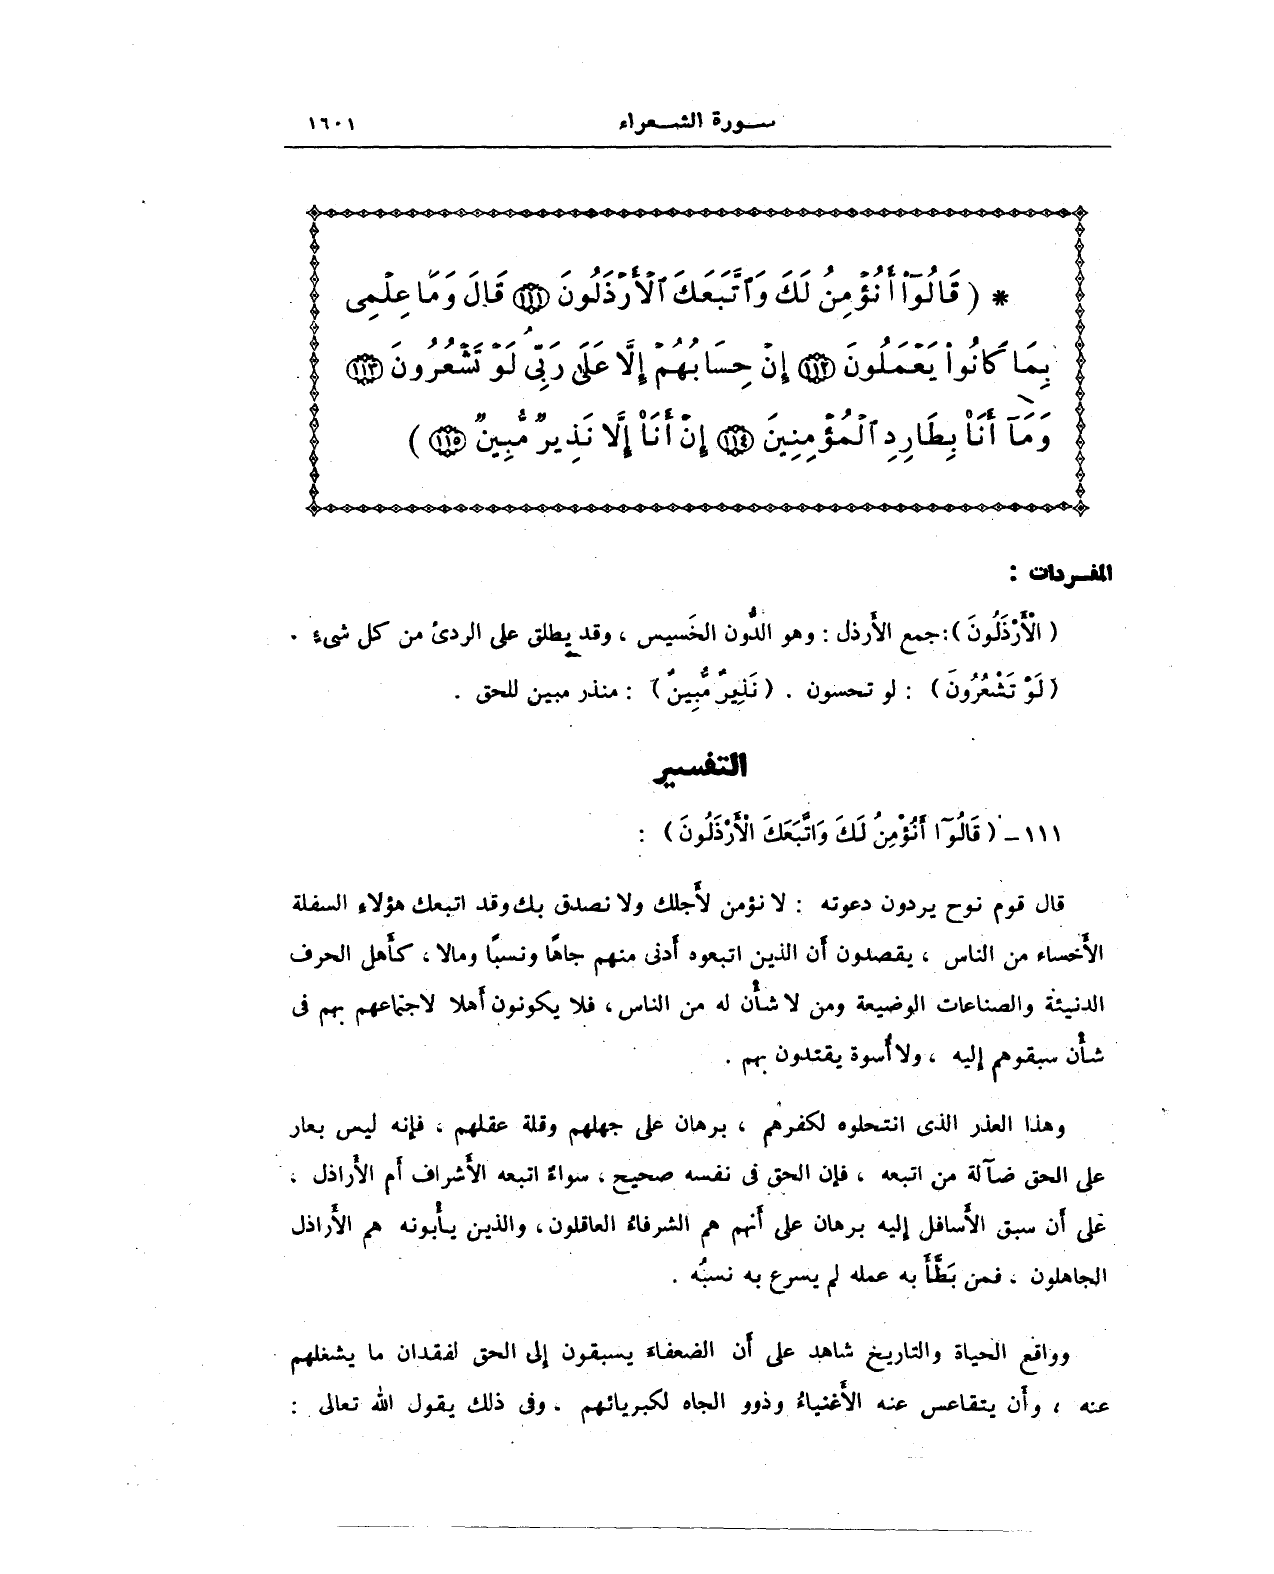 سـورة الشـعراء ١٦٠١
* ( قَالُوٓا۟ أَنُؤْمِنُ لَكَ وَٱتَّبَعَكَ ٱلْأَرْذَلُونَ ﴿١١١﴾ قَالَ وَمَا عِلْمِى
بِمَا كَانُوا۟ يَعْمَلُونَ ﴿١١٢﴾ إِنْ حِسَابُهُمْ إِلَّا عَلَىٰ رَبِّى لَوْ تَشْعُرُونَ ﴿١١٣﴾
وَمَآ أَنَا۠ بِطَارِدِ ٱلْمُؤْمِنِينَ ﴿١١٤﴾ إِنْ أَنَا۠ إِلَّا نَذِيرٌ مُّبِينٌ ﴿١١٥﴾ )
المفـردات :
( الْأَرْذَلُونَ ):جمع الأَرذل : وهو الدُّون الخَسيس ، وقد يطلق على الردئ من كل شىءٍ .
( لَوْ تَشْعُرُونَ ) : لو تحسون . ( نَذِيرٌ مُّبِينٌ ) : منذر مبين للحق .
التفسير
١١١ – ( قَالُوٓا أَنُؤْمِنُ لَكَ وَاتَّبَعَكَ الْأَرْذَلُونَ ) :
قال قوم نوح يردون دعوته : لا نؤمن لأَجلك ولا نصدق بك وقد اتبعك هؤلاءِ السفلة
الأَخساء من الناس ، يقصدون أَن الذين اتبعوه أَدنى منهم جاهًا ونسبًا ومالا ، كأَهل الحرف
الدنيئة والصناعات الوضيعة ومن لا شأْن له من الناس ، فلا يكونون أَهلا لاجتماعهم بهم فى
شأْن سبقوهم إليه ، ولا أُسوة يقتدون بهم .
وهذا العذر الذى انتحلوه لكفرهم ، برهان على جهلهم وقلة عقلهم ، فإنه ليس بعار
على الحق ضآلة من اتبعه ، فإن الحق فى نفسه صحيح ، سواءٌ اتبعه الأَشراف أَم الأَراذل ،
على أَن سبق الأَسافل إليه برهان على أَنهم هم الشرفاءُ العاقلون ، والذين يأْبونه هم الأَراذل
الجاهلون ، فمن بَطَّأَ به عمله لم يسرع به نسبُه .
وواقع الحياة والتاريخ شاهد على أَن الضعفاءَ يسبقون إلى الحق لفقدان ما يشغلهم
عنه ، وأَن يتقاعس عنه الأَغنياءُ وذوو الجاه لكبريائهم . وفى ذلك يقول الله تعالى :